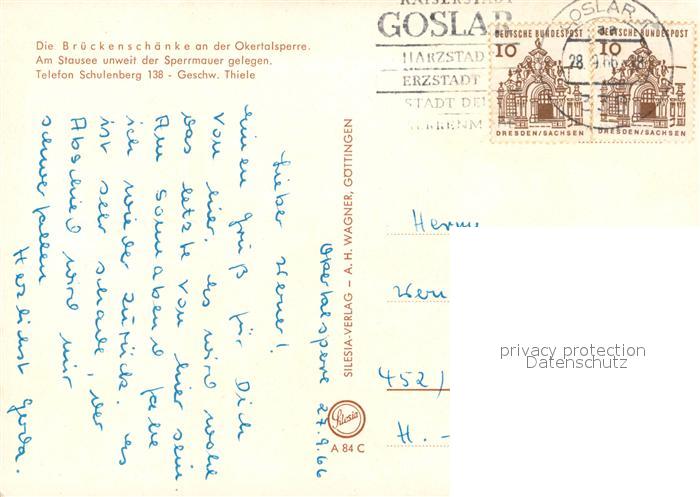 Die Brückenschänke an der Okertalsperre.
Am Stausee unweit der Sperrmauer gelegen.
Telefon Schulenberg 138 - Geschw. Thiele
KAISERSTADT
GOSLAR
HARZSTADT
ERZSTADT
STADT DER
GOSLAR
28.9.66-18
DEUTSCHE BUNDESPOST
10
DRESDEN/SACHSEN
DEUTSCHE BUNDESPOST
10
DRESDEN/SACHSEN
Okertalsperre 27.9.66
Lieber Werner!
Einen Gruß für Dich
von hier. Es wird wohl
das letzte von hier sein
Am Sonnabend fahre
ich wieder zurück. Es
ist sehr schade, der
Abschied wird mir
schwerfallen
Herzlichst Gerda.
SILESIA-VERLAG – A. H. WAGNER, GÖTTINGEN
Silesia
A 84 C
Herrn
Wern
452/
H. -
privacy protection
Datenschutz